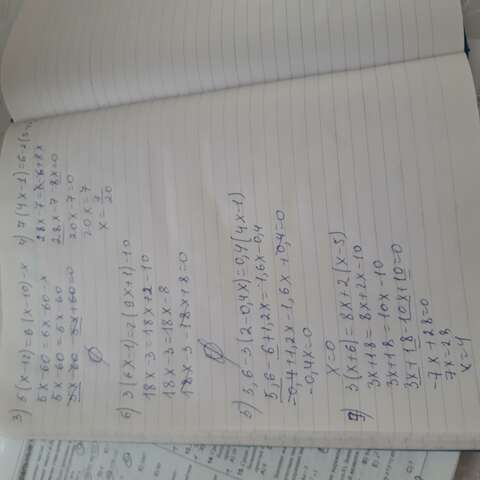 3) 5(x-12)=6(x-10)-x
5x-60=6x-60-x
5x-60=5x-60
5x-60-5x+60=0
∅
4) 7(4x-1)=6-2(3-4
28x-7=6-6+8x
28x-7-8x=0
20x-7=0
20x=7
x=7/20
6) 3(6x-1)=2(9x+1)-10
18x-3=18x+2-10
18x-3=18x-8
18x-3-18x+8=0
∅
5) 5,6-3(2-0,4x)=0,4(4x-1)
5,6-6+1,2x=1,6x-0,4
-0,4+1,2x-1,6x+0,4=0
-0,4x=0
x=0
7) 3(x+6)=8x+2(x-5)
3x+18=8x+2x-10
3x+18=10x-10
3x+18-10x+10=0
-7x+28=0
7x=28
x=4